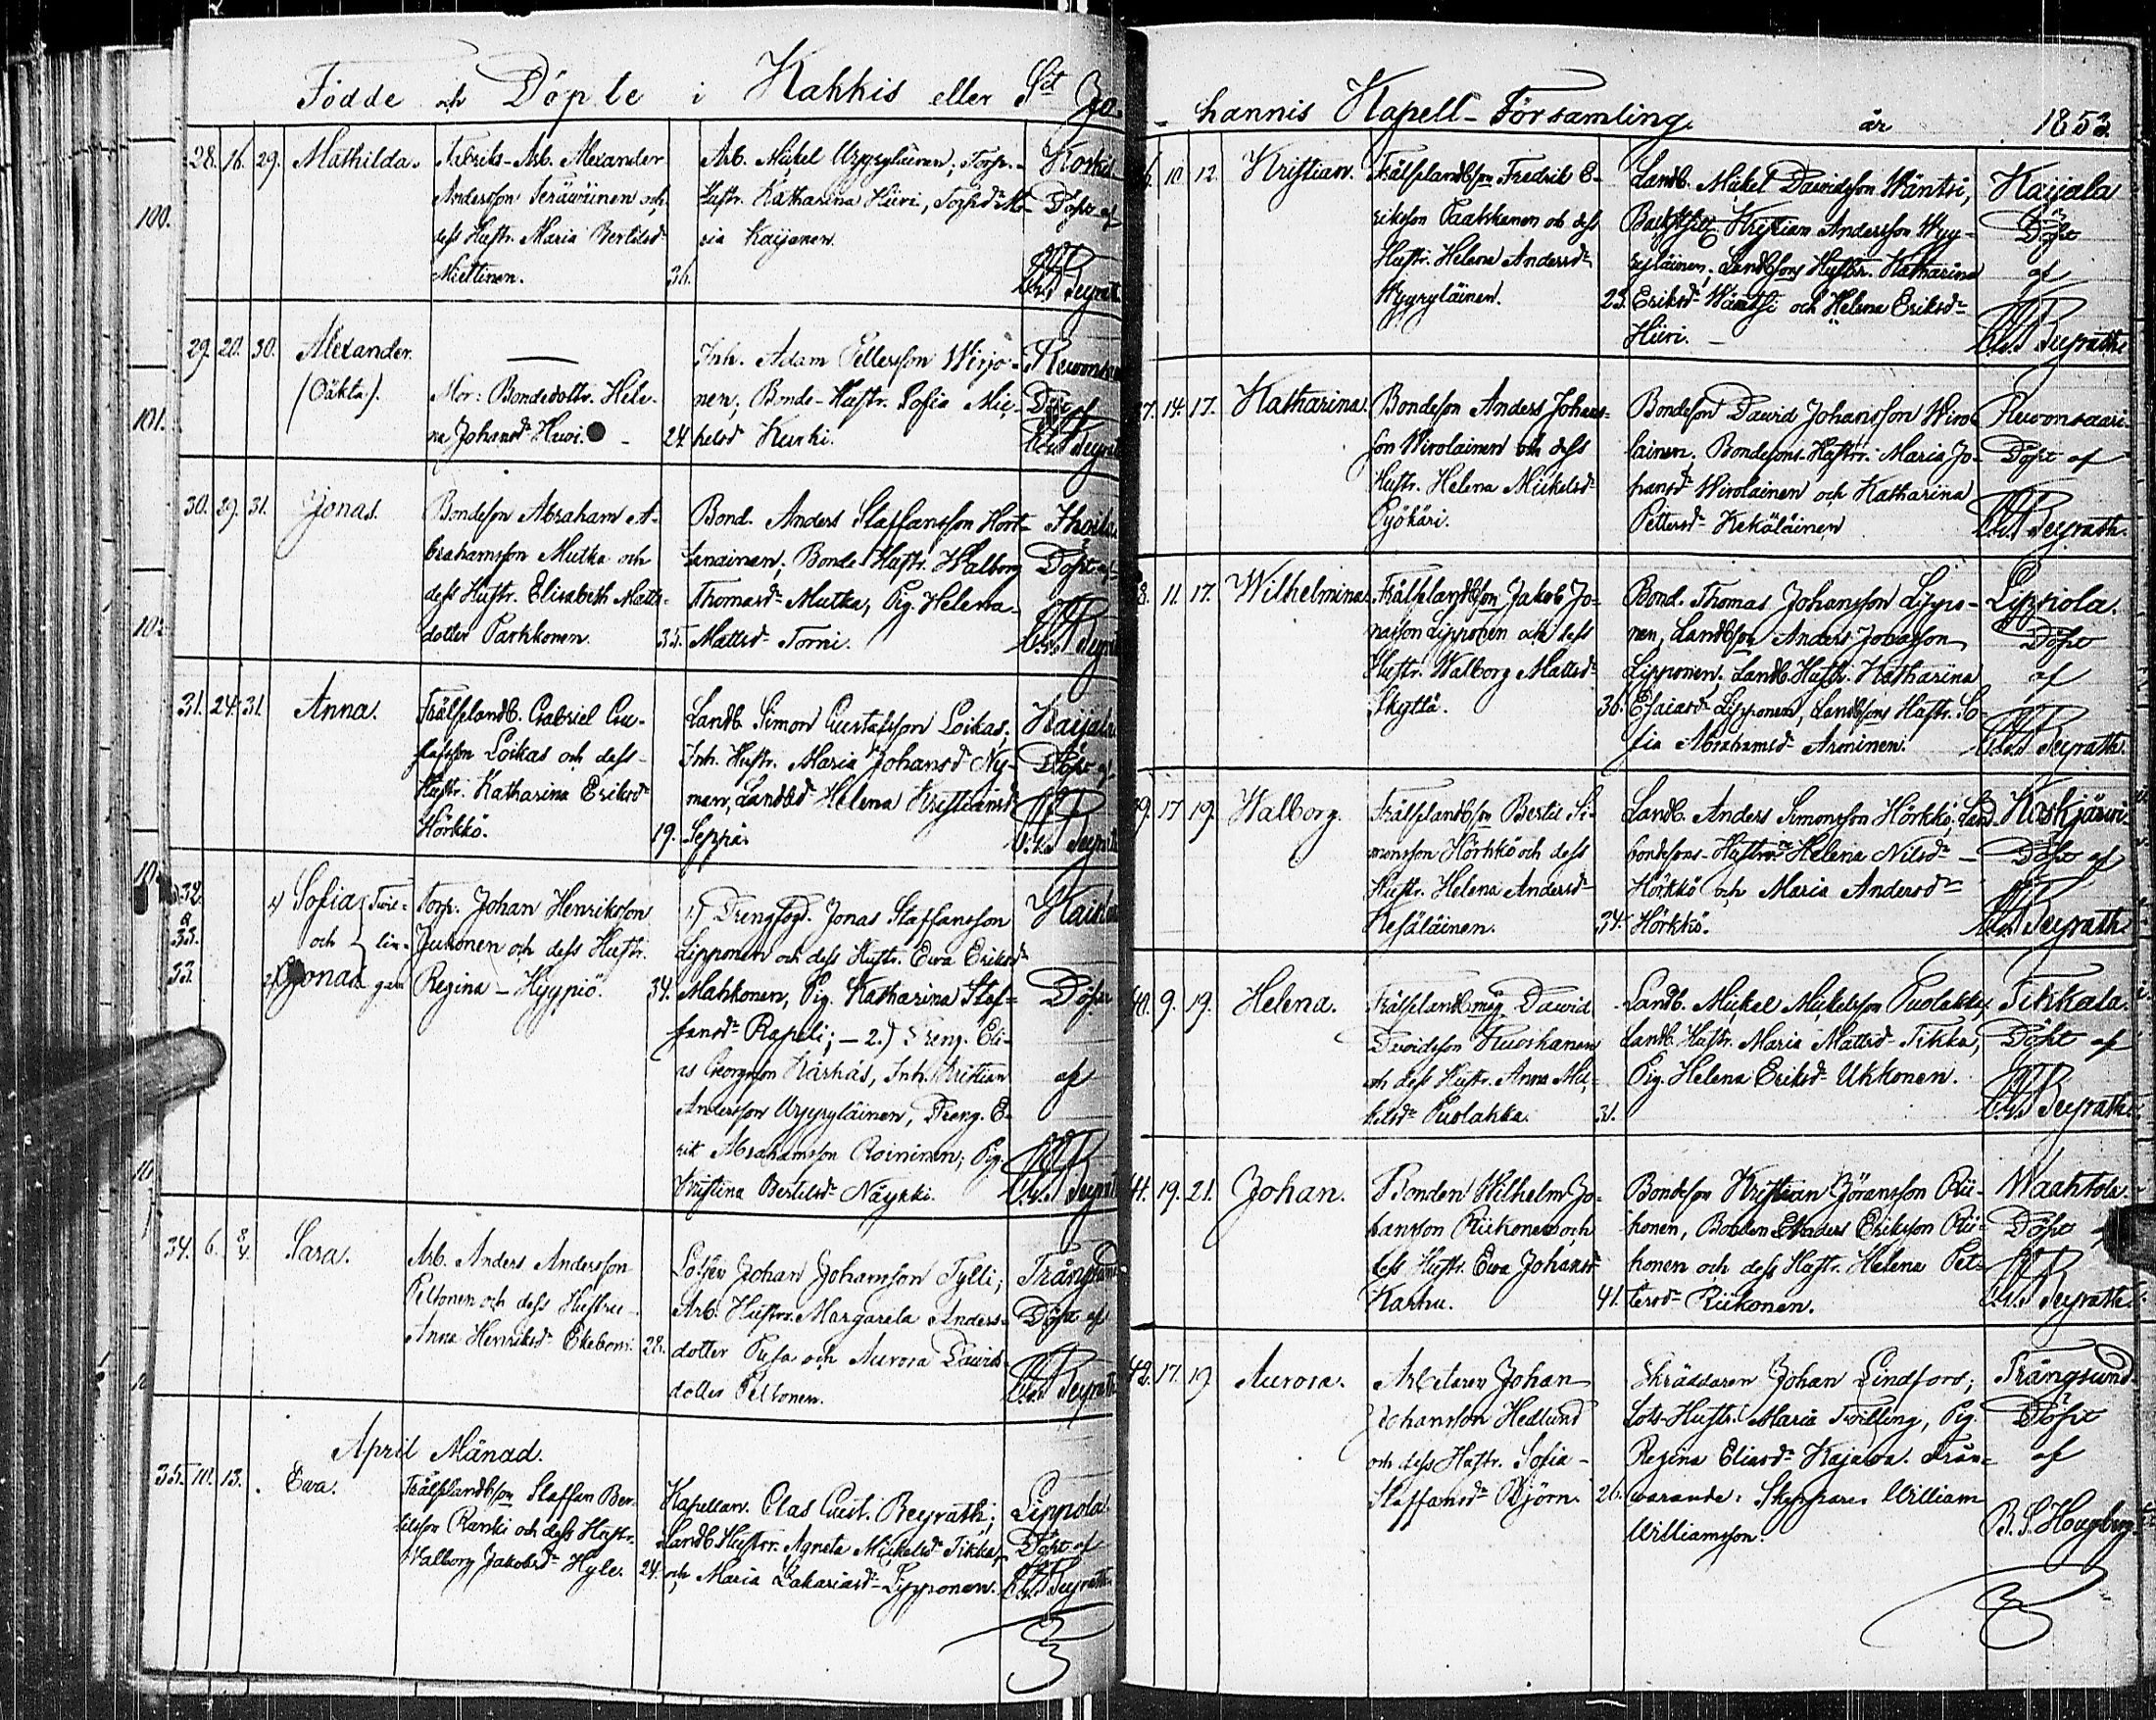 Födde och Döpte i Kakkis eller S:t Jo-
28. 16. 29. Mathilda.
Fabriks-Arb. Alexander
Andersson Teräwäinen och
dess Hustr. Maria Bertilsd:r
Miettinen. 36.
Arb. Mickel Wyyryläinen; Torp.-
Hustr. Katharina Hüri, Torpd:r Ma-
ria Kaijanen.
Döpt af
29. 20. 30. Alexander.
(Oäkta).
Mor: Bondedottr. Hele-
na Johansd:r Huvi. 24.
Inh. Adam Pettersson Wirjo-
nen; Bonde-Hustr. Sofia Mic-
kelsd Kurki.
30. 29. 31. Jonas.
Bondeson Abraham A-
brahamsson Mutka och
dess Hustr. Elisabeth Matts-
dotter Parkkonen. 35.
Bond. Anders Staffansson Hort-
lanainen; Bonde Hustr. Walborg
Thomasd:r Mutka, Pig. Helena
Mattsd:r Torni.
Döpt af
31. 24. 31. Anna.
Frälselandb. Gabriel Gu-
stafsson Loikas och dess
Hustr. Katharina Eriksd:r
Hörkkö. 19.
Landb. Simon Gustafsson Loikas;
Inh. Hustr. Maria Johansd:r Ny-
man, Landbd:r Helena Kristiansd:r
Seppä.
Kaijala
Döpt af
32. & 33. 33.
1) Sofia och 2) Jonas Twillingar
Torp. Johan Henriksson
Jukonen och dess Hustr.
Regina Hyypiö. 34.
1) Drengfogd. Jonas Staffansson
Lipponen och dess Hustr. Ewa Eriksd:r
Mahkonen, Pig. Katharina Staf-
fansd:r Rapeli; — 2.) Dreng. Eli-
as Georgsson Kärhäs, Inh. Kristian
Andersson Wyyryläinen, Dreng. E-
rik Abrahamsson Roininen; Pig.
Kristina Bertilsd:r Näykki.
Döpte
af
34. 6. 8/4. Sara.
Arb. Anders Andersson
Peltonen och dess Hustru
Anna Henriksd:r Ekebom. 28.
Lotsen Johan Johansson Tylli;
Arb. Hustrr. Margareta Anders-
dotter Pusa och Aurora Davids-
dotter Peltonen.
Trångsund
Döpt af
April Månad.
35. 10. 13. Ewa.
Frälselandb:son Staffan Ber-
tilsson Ranki och dess Hustr.
Walborg Jakobsd:r Hyle. 24.
Kapellan. Clas Gust. Peyrath;
Landb. Hustrr. Agneta Mickelsd:r Tikka,
och Maria Zakariasd:r Lipponen.
Lippola
Döpt af
hannis Kapell-Församling år 1853.
36. 10. 12. Kristian.
Frälselandb:son Fredrik E-
riksson Paakkanen och dess
Hustr. Helena Andersd:r
Wyyryläinen. 23.
Landb. Mickel Davidsson Wäntsi,
Kristian Andersson Wyy-
ryläinen; Landb:sons Hustrr. Katharina
Eriksd:r Wäntsi och Helena Eriksd:r
Hüri.
Kaijala
Döpt
af
Peyrath
37. 14. 17. Katharina.
Bondeson Anders Johans-
son Wirolainen och dess
Hustr. Helena Mickelsd:r
Pyökäri.
Bondeson David Johansson Wiro-
lainen. Bondesons-Hustrr. Maria Jo-
hansd:r Wirolainen och Katharina
Pettersd:r Kekäläinen
Rewonsaari.
Döpt af
Peyrath.
38. 11. 17. Wilhelmina
Frälselandb:son Jakob Jo-
nasson Lipponen och dess
Hustr. Walborg Mattsd:r
Skyttä. 36.
Bond. Thomas Johansson Lippo-
nen, Landb:son Anders Jonasson
Lipponen; Landb. Hustr. Katharina
Esaiasd:r Lipponen, Landb:sons Hustr. So-
fia Abrahamsd:r Arminen.
Lippola.
Döpt
af
Peyrath.
39. 17. 19. Walborg.
Frälselandb:son Bertil Si-
monsson Hörkkö och dess
Hustr. Helena Andersd:r
Kesäläinen. 34.
Landb. Anders Simonsson Hörkkö; Land-
bondesons-Hustrr. Helena Nilsd:r
Hörkkö och Maria Andersd:r
Hörkkö.
Koskjärwi
Döpt af
Peyrath
40. 9. 19. Helena.
Frälselandb:måg David
Davidsson Kuoskanen
och dess Hustr. Anna Mic-
kelsd:r Puolakka. 31.
Landb. Mickel Mickelsson Puolakka,
Landb. Hustr. Maria Mattsd:r Tikka,
Pig. Helena Eriksd:r Ukkonen.
Tikkala.
Döpt af
Peyrath
41. 19. 21. Johan.
Bonden Wilhelm Jo-
hansson Riikonen och
dess Hustr. Ewa Johansd:r
Karhu. 41.
Bondeson Kristian Jöransson Rii-
konen, Bonden Anders Eriksson Rii-
konen och dess Hustr. Helena Pet-
tersd:r Riikonen.
Waahtola.
Döpt af
Peyrath
42. 17. 19. Aurora.
Arbetaren Johan
Johansson Hedlund
och dess Hustr. Sofia
Staffansd:r Björn. 26.
Skräddaren Johan Lindfors;
Lots-Hustr. Maria Twilling, Pig.
Regina Eliasd:r Kajawa. Från-
warande: Skepparen William
Williamsson.
Trångsund.
Döpt
af
100.
101.